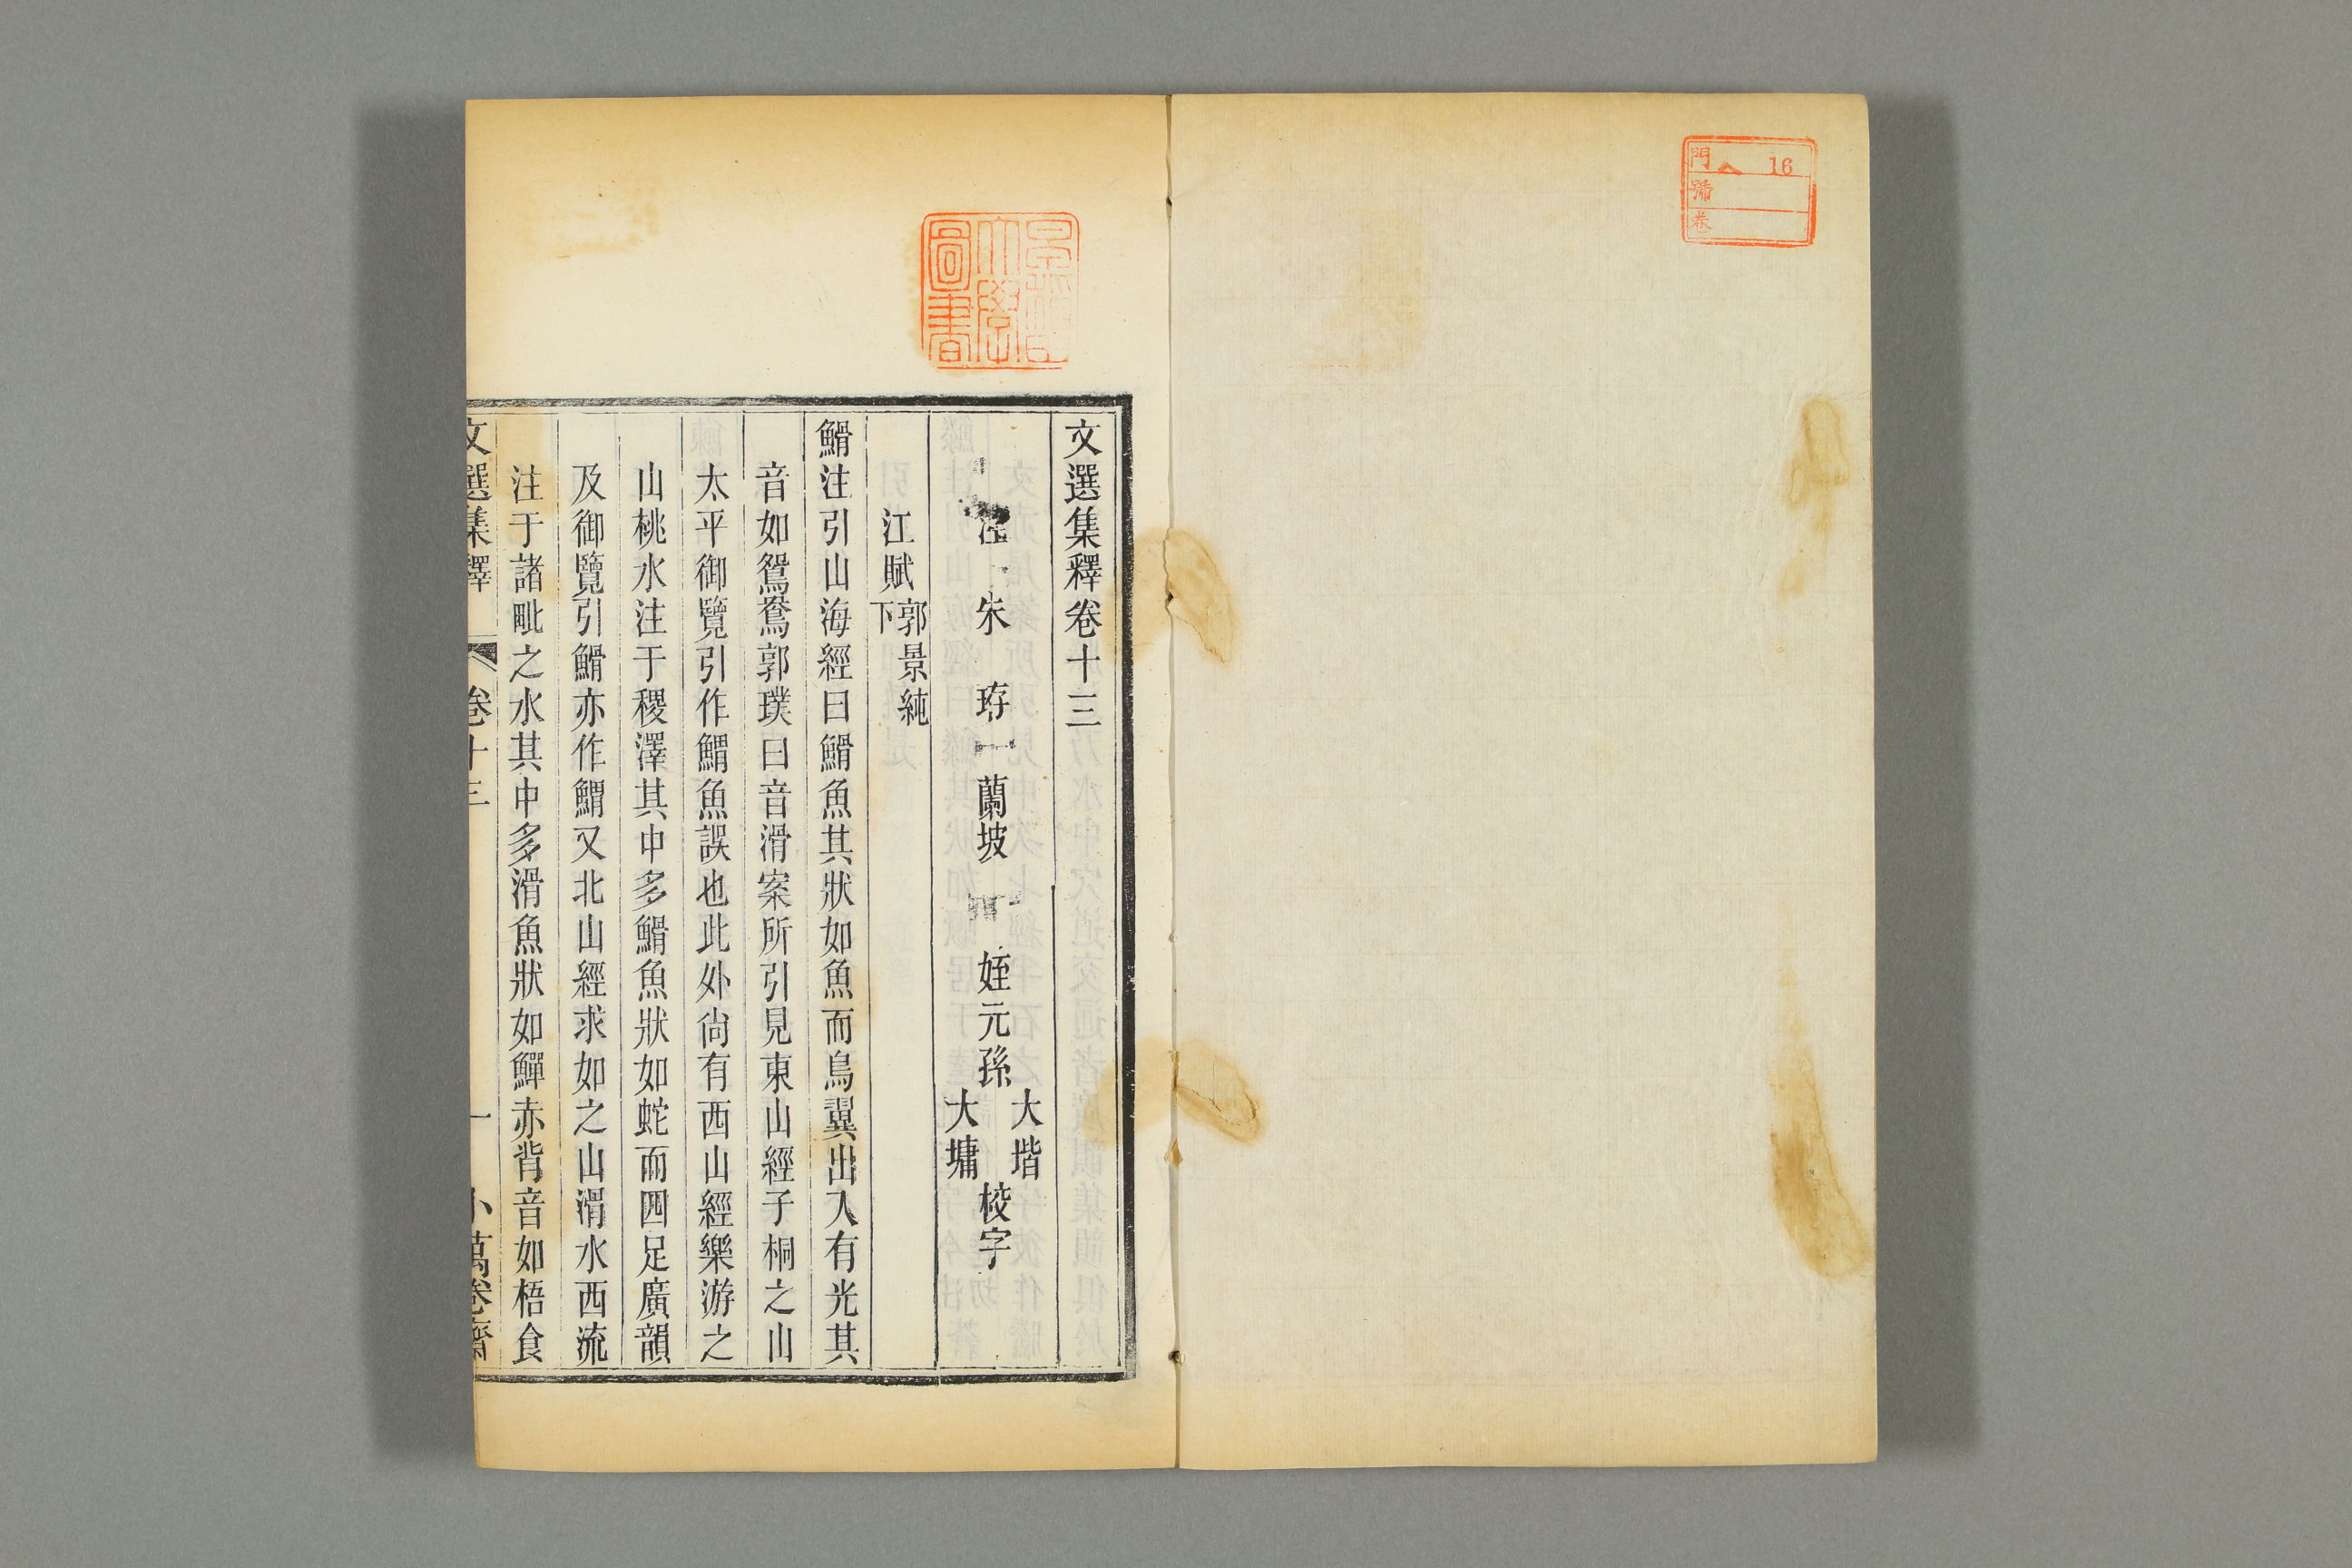 門 へ 16
號
卷
文選集釋卷十三
朱珔 蘭坡 姪元孫 大堦 大墉 校字
江賦 郭景純 下
䱻注引山海經曰䱻魚其狀如魚而鳥翼出入有光其
音如鴛鴦郭璞曰音滑案所引見東山經子桐之山
太平御覽引作䱵魚誤也此外尙有西山經樂游之
山桃水注于稷澤其中多䱻魚狀如蛇而四足廣韻
及御覽引䱻亦作䱵又北山經求如之山滑水西流
注于諸毗之水其中多滑魚狀如鱓赤背音如梧食
文選集釋 卷十三 一 小萬卷齋
大學
圖書